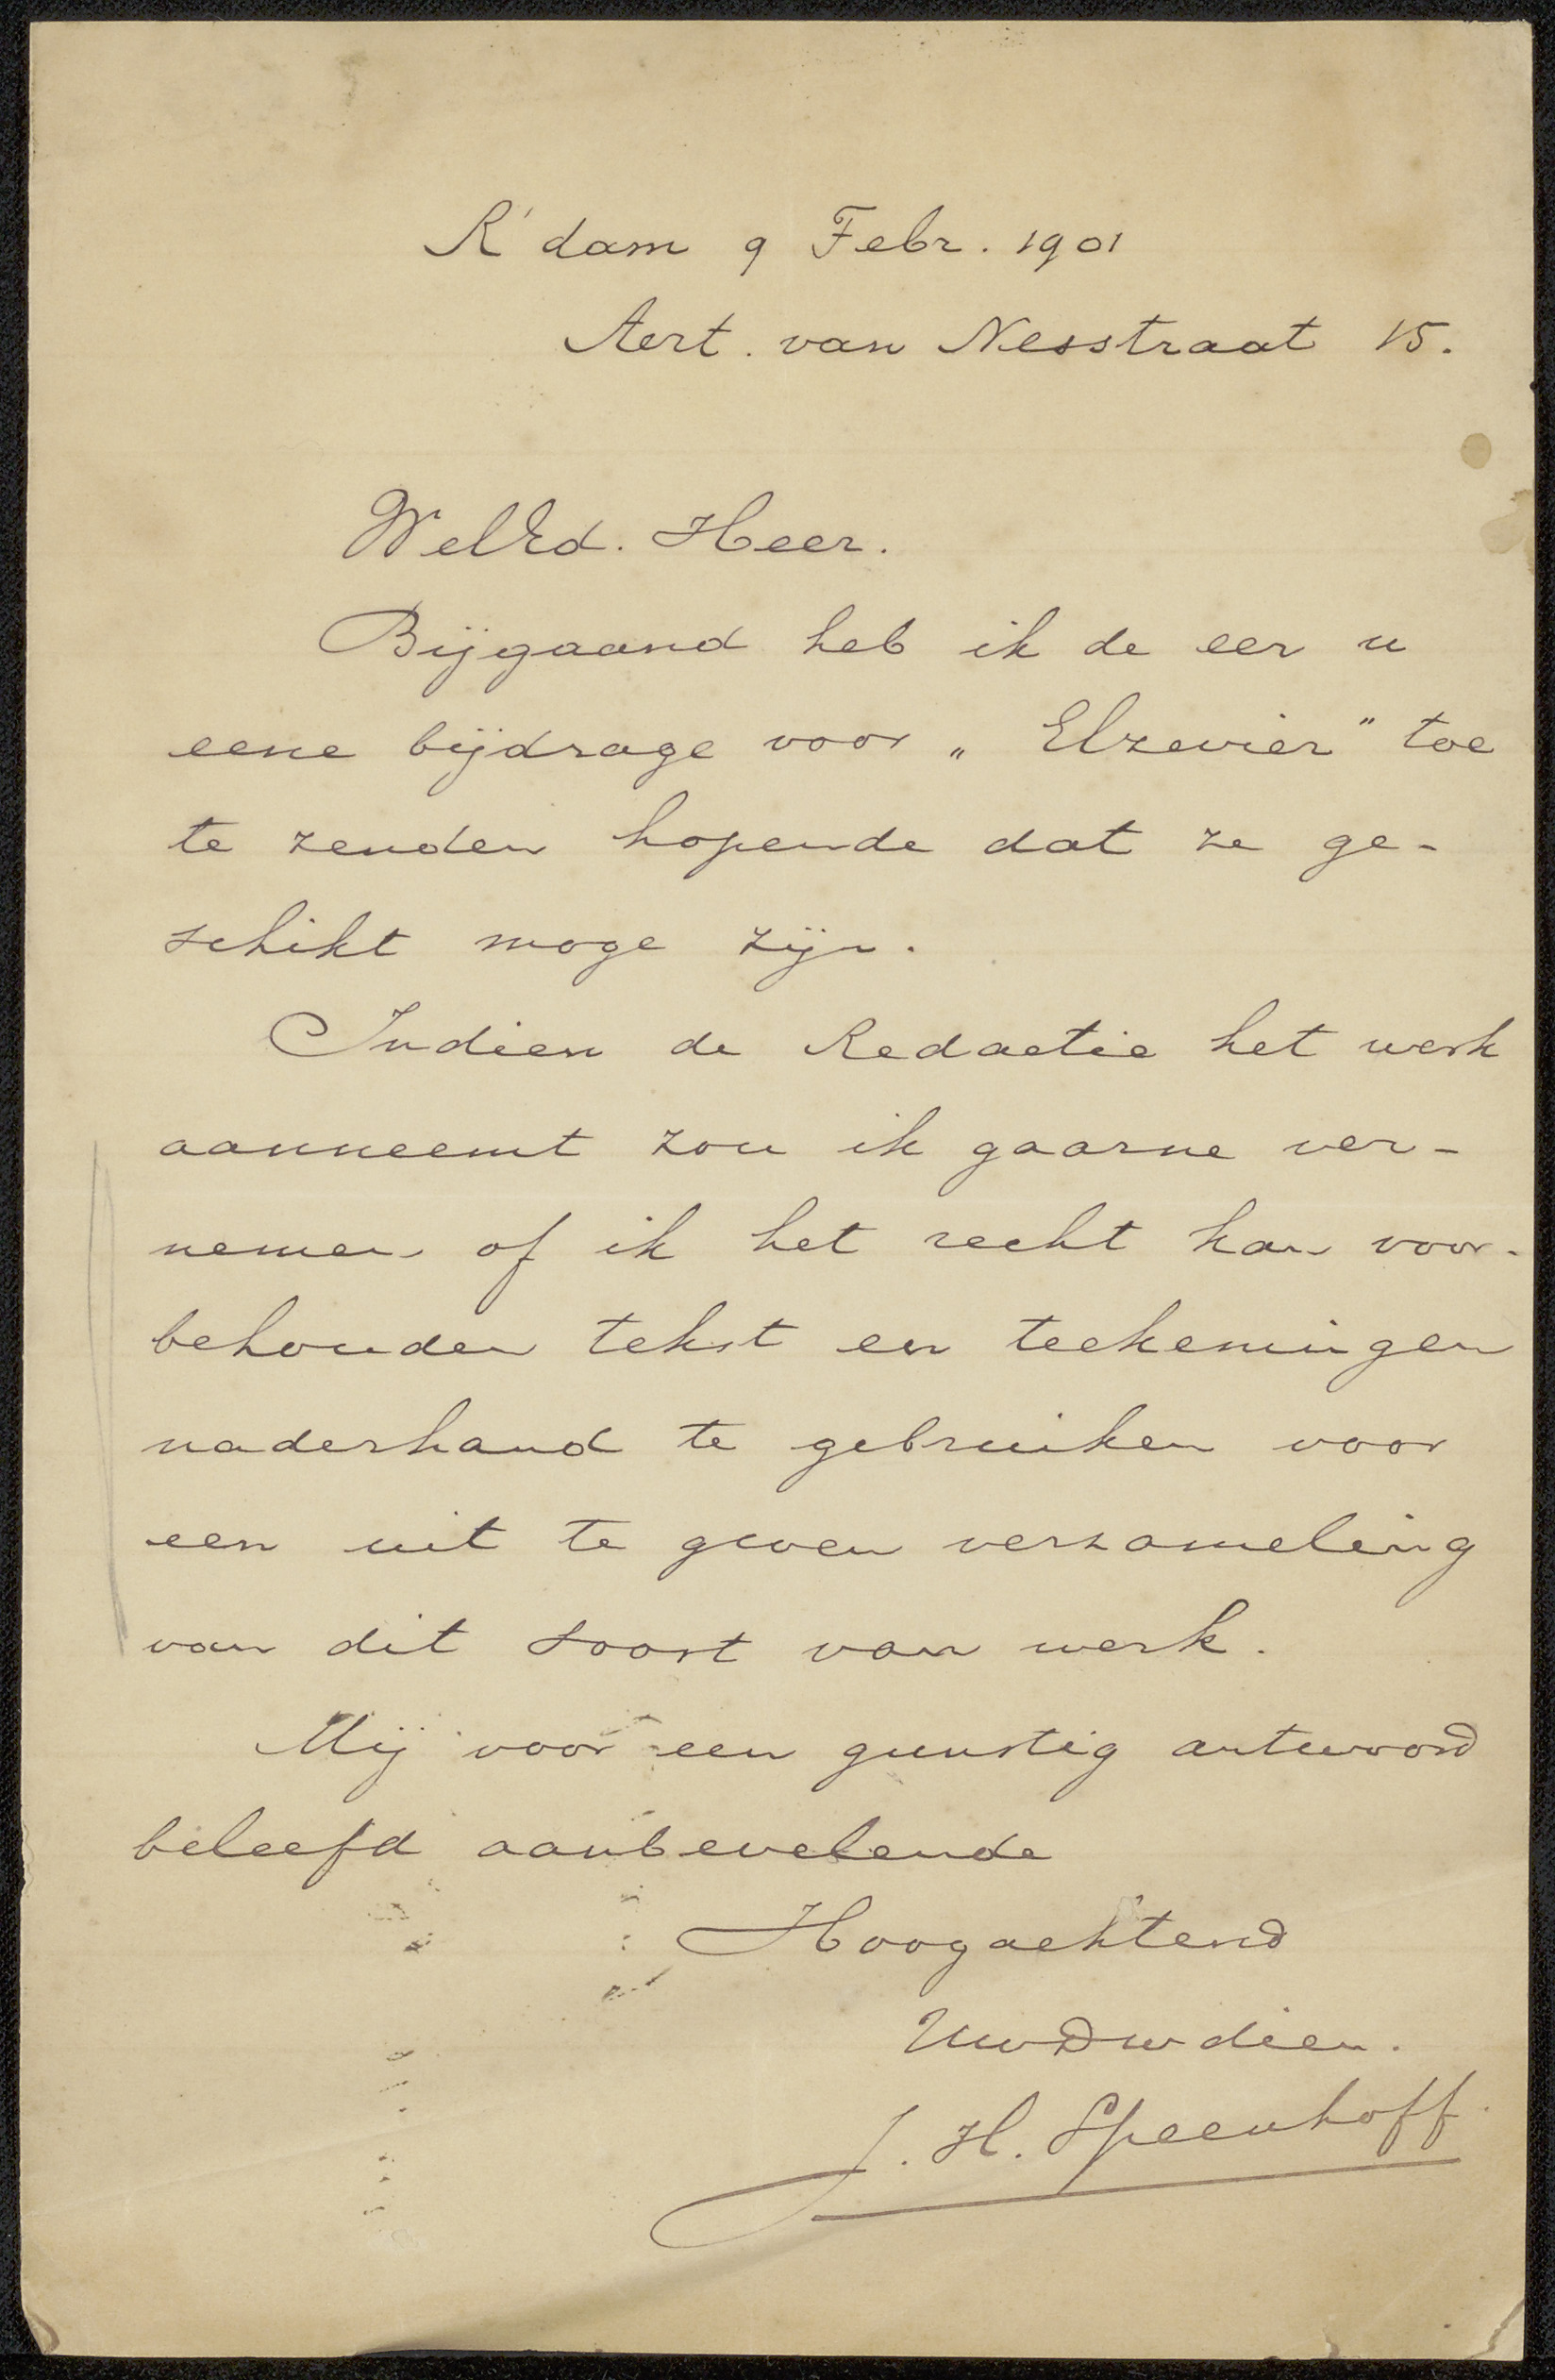 R'dam 9 Febr. 1901
Aert. van Nesstraat 15.
WelEd. Heer.
Bijgaand heb ik de eer u
eene bijdrage voor „Elzevier" toe
te zenden hopende dat ze ge-
schikt moge zijn.
Indien de Redactie het werk
aanneemt zou ik gaarne ver-
nemen of ik het recht kan voor-
behouden tekst en teekeningen
naderhand te gebruiken voor
een uit te geven verzameling
van dit soort van werk.
Mij voor een gunstig antwoord
beleefd aanbevelende
Hoogachtend
UwDwdien.
J. H. Speenhoff